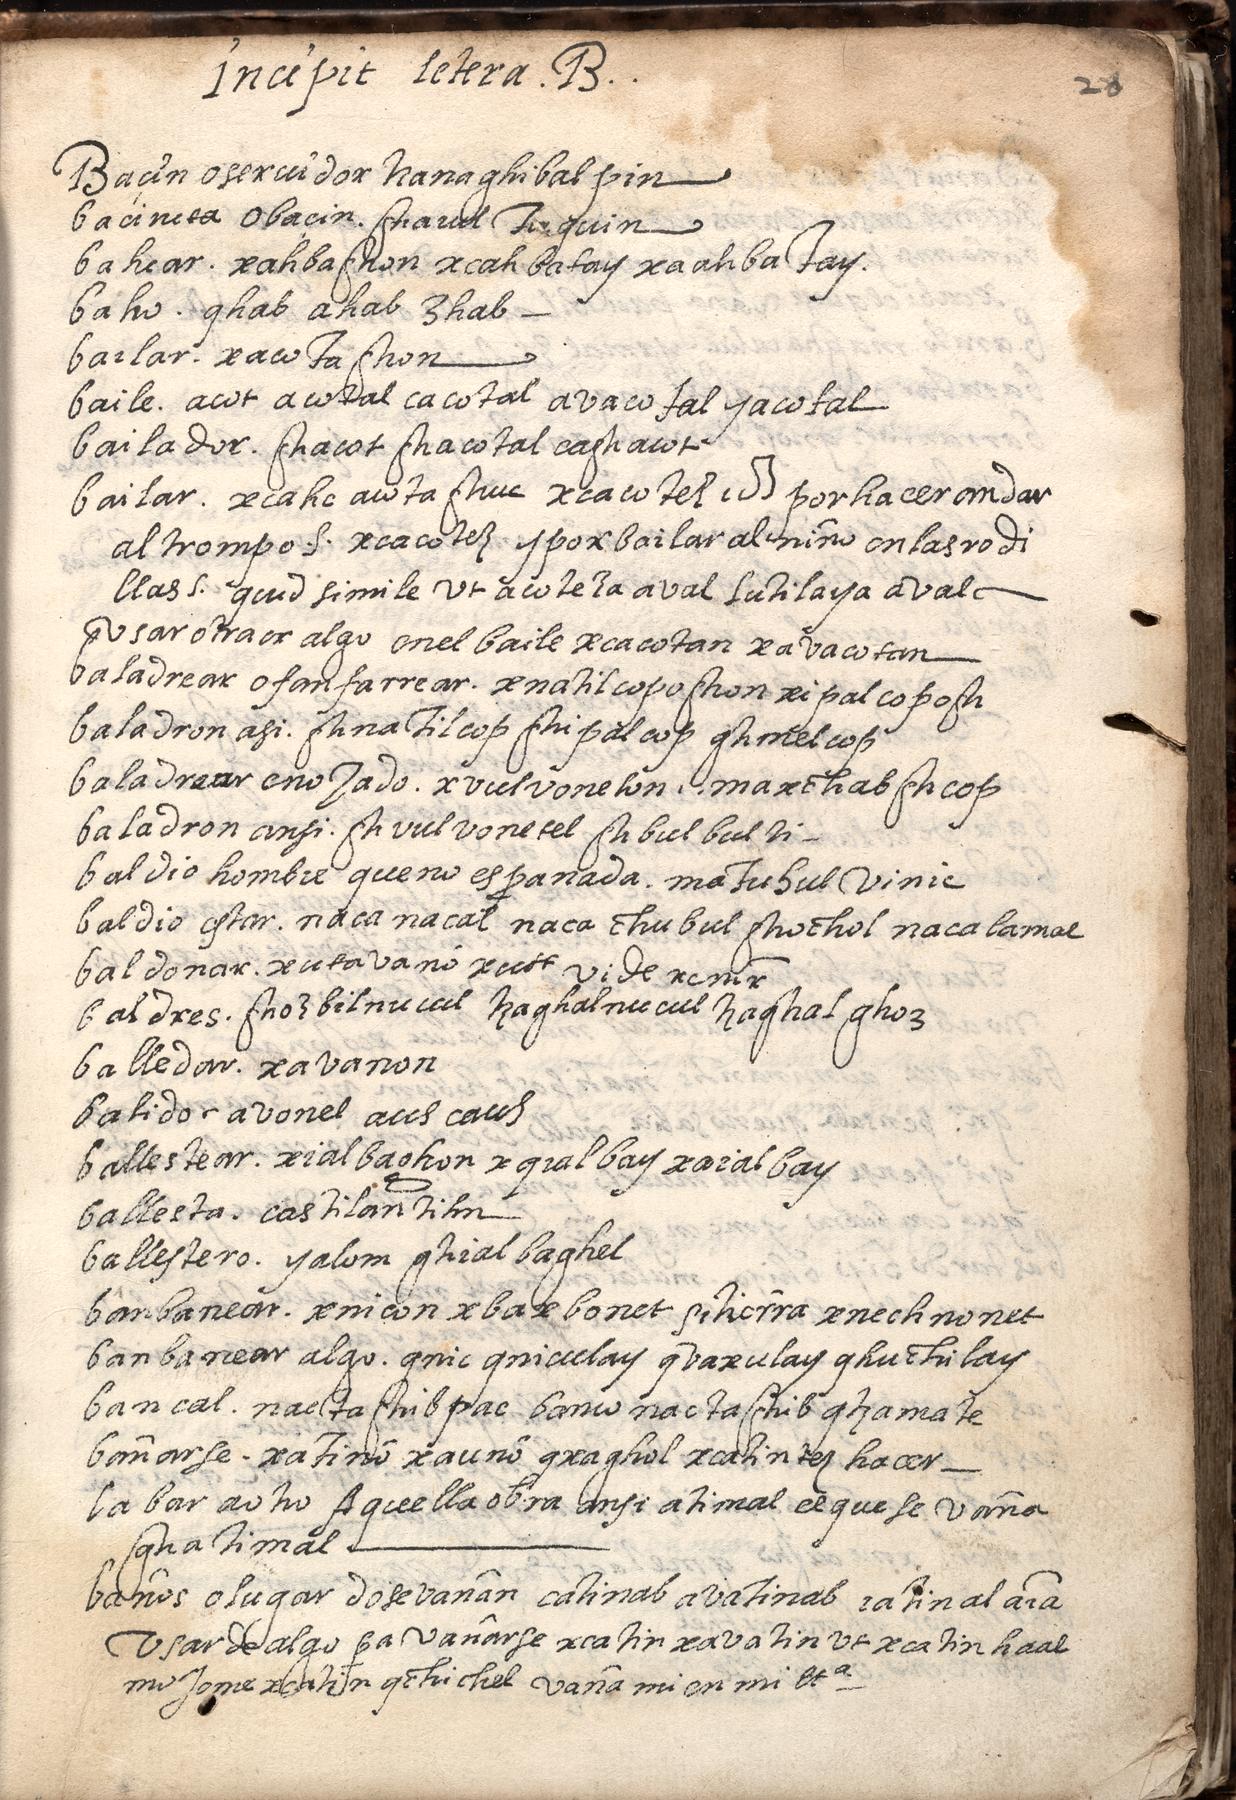 Incipit letera . B . .
28
Bacin o seruidor hanaghibal pin
bacineta o bacin. ghauul
bahear . xahbaghon xcahbatay xaahbatay.
baho . ghab ahab 3hab
bailar . xacotaghon
baile . acot acotal cacotal avacotal yacotal
bailador . ghacot ghacotal caghacot
bailar . xcahc acotaghuc por hacer andar
al trompo .s. xcacotez y por bailar al niño en las rodi
llas s. quid simile vt acoteza aval lutilaya aval
vsar o traer algo en el baile xcacotan xavacotan
baladrear o fanfarrear . xnatilcopoghon xipalcopogh
baladron asi . ghnatilcop ghipalcop ghmelcop
baladrear enojado . xvulvonelon maxchab ghcop
baladron ansi . ghvulvonetel ghbulbulti
baldio hombre que no es panada . matuhul vinic
baldio estar . naca nacal naca chubul ghochol nacalamal
baldonar . xutavano xutt vide
baldres . ghozbilnucul haghalnucul haghal ghoz
balledar . xavanon
balido avonel auh cauh
ballestear . xialbaghon xqialbay xaialbay
ballesta . castilan
ballestero . yalom ghialbaghel
banbanear . xnicon xbaxbonet si tierra xnechnonet
banbanear algo . qnic qniculay qvaxulay qhuchilay
bancal . nactaghibpac banco nactaghib
bañarse . xatinō xaunō qxaghol xcatintez hacer
labar a otro Aquella obra ansi atimal el que se vaña
ghatimal
baños o lugar do se vañan catinab avatinab
vsar de algo pa vañarse xcatin xavatin vt xcatin haal
xcatin qchichel vaña mi en mi